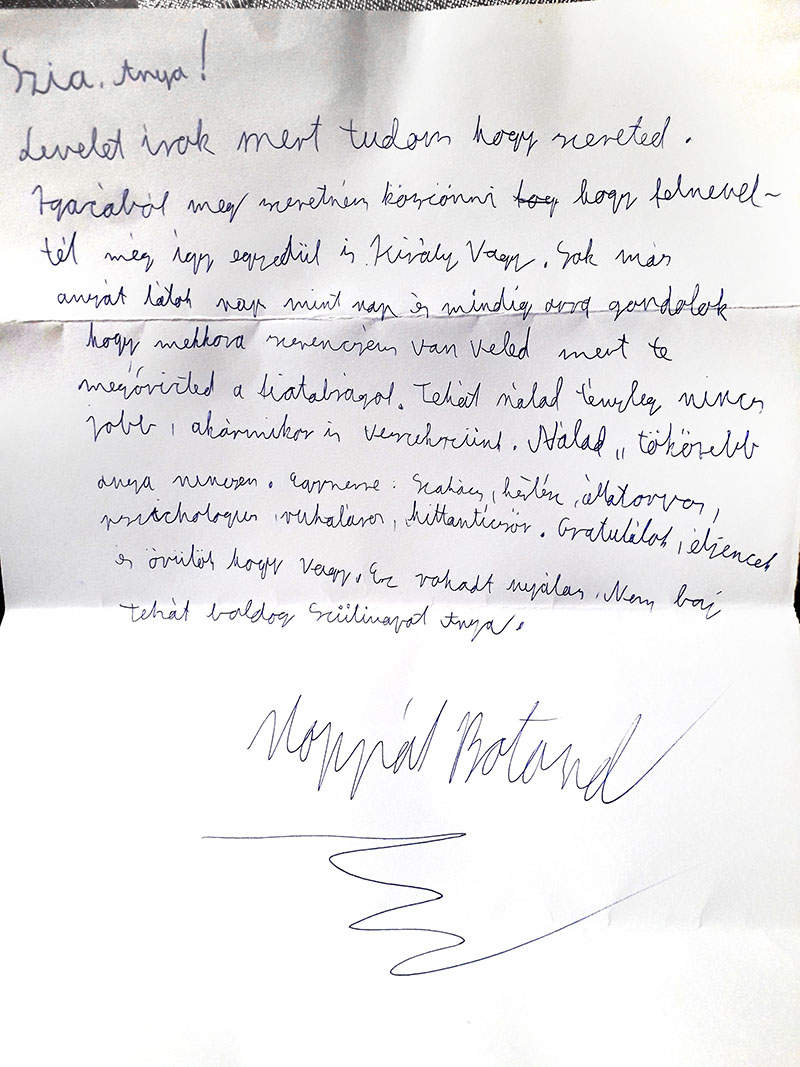 Szia. Anya!
Levelet irok mert tudom hogy szereted.
Igaziából meg szeretném köszönni hogy felnevel-
tél még így egyedül is. Király Vagy. Sok más
anyát látok nap mint nap és mindig arra gondolok
hogy mekkora szerencsém van veled mert te
megőrizted a fiatalságod. Tehát nálad tényleg nincs
jobb, akármikor is veszekszünk. Nálad „ tökösebb
anya nincsen. Egyszerre: Szakács, festő, állatorvos,
pszichologus, ruhatáros, hittantűcsör. Gratulálok, éljenek
és örülök hogy vagy. Ez rohadt nyálas. Nem baj
tehát boldog Szülinapot Anya.
Noppál Botond